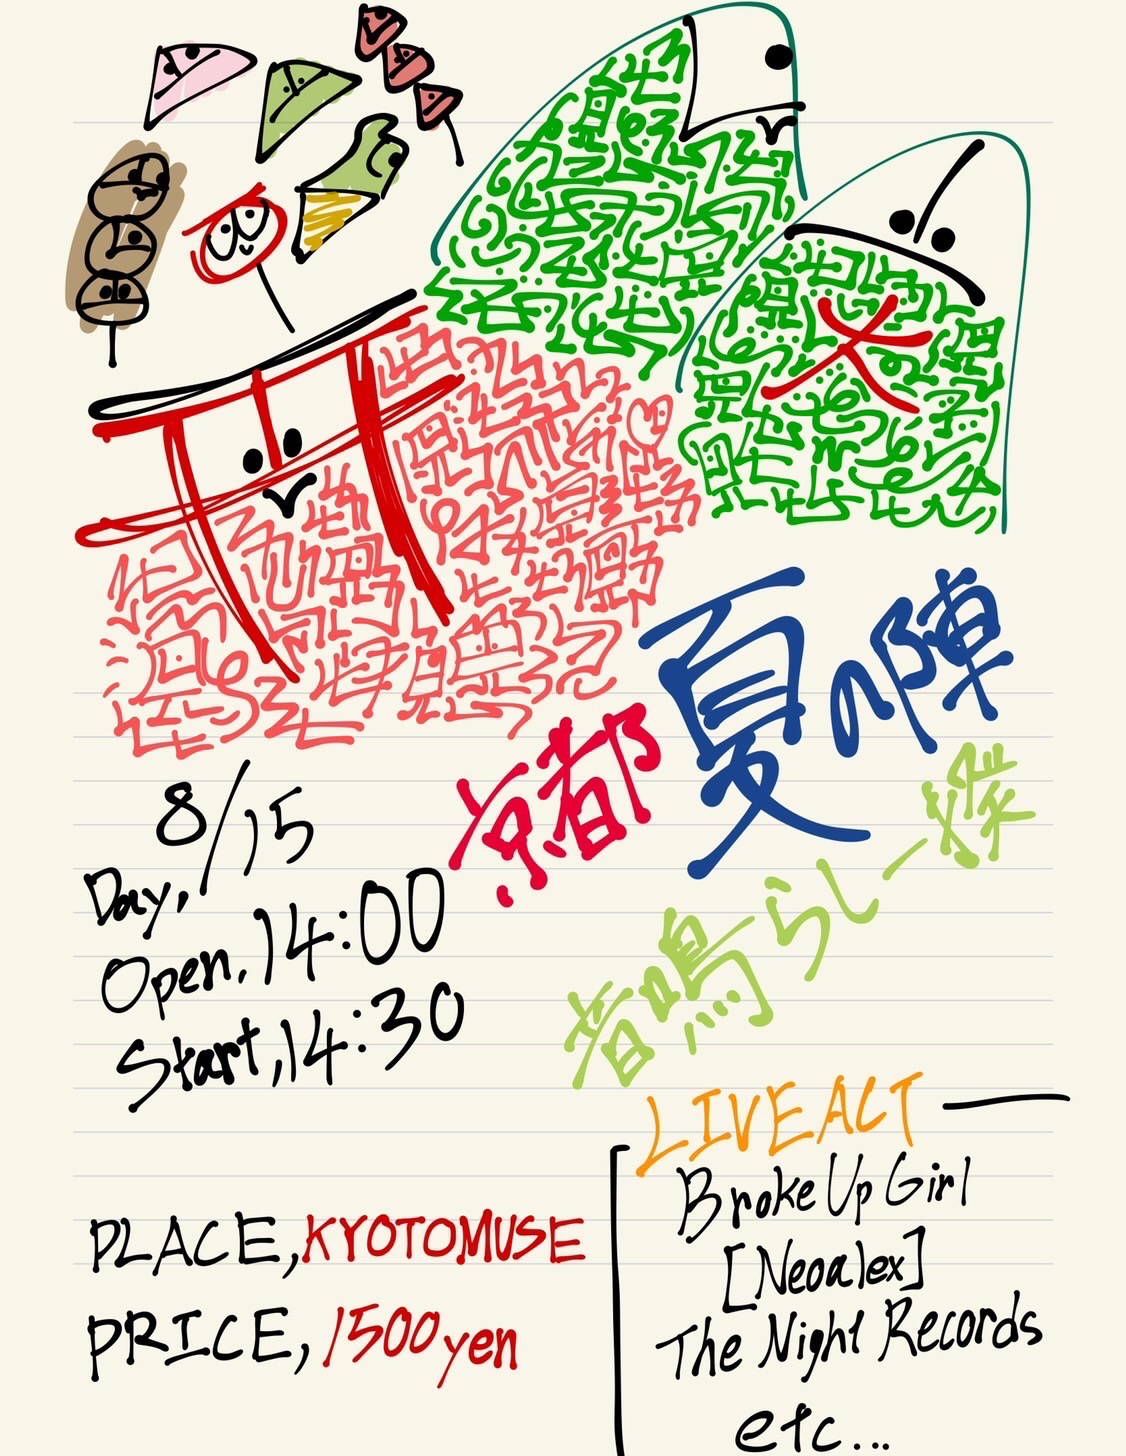 大
京都
夏の陣
音鳴らし一揆
8/15
Day,
Open,14:00
Start,14:30
LIVE ACT
Broke Up Girl
[Neoalex]
The Night Records
etc...
PLACE,KYOTOMUSE
PRICE,1500yen